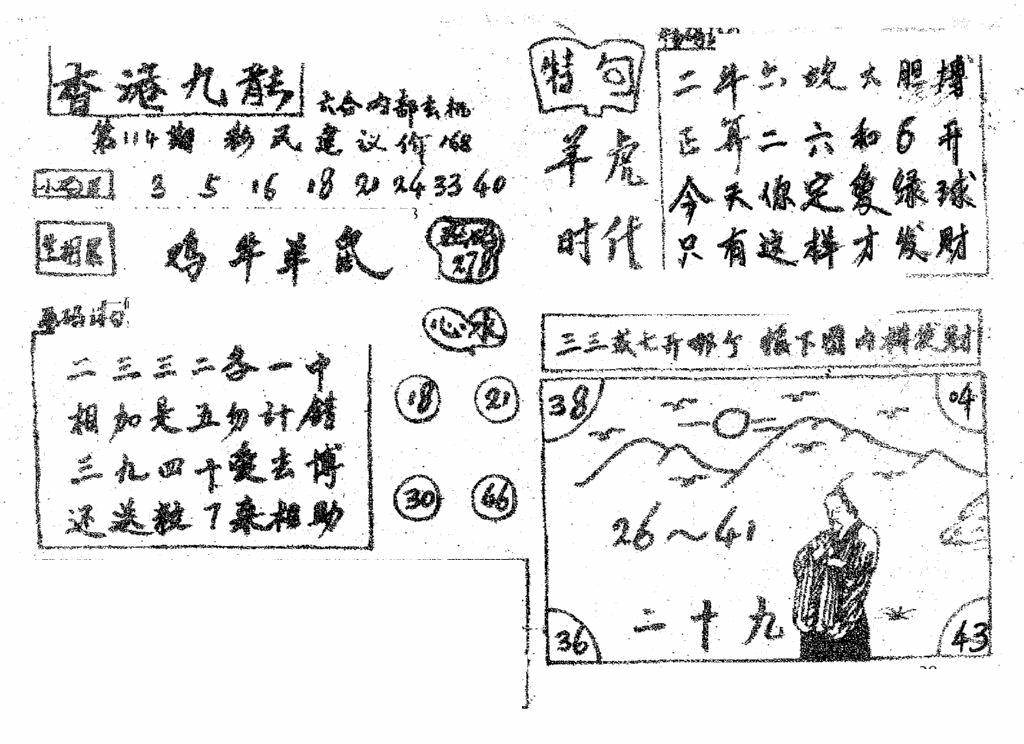 香港九龍
六合内部玄机
第114期 彩民建议价168
3 5 16 18 21 24 33 40
生相
鸡牛羊鼠
278
心水
18 21
30 66
二三三二各一中
相加是五勿计错
三九四十爱去博
还送粒7来相助
特句
羊虎
时代
二斗六 大胆搏
正算二六和6开
今天你定爱绿球
只有这样才发财
三三或七开哪个 下图内 发财
38 04
26～41
二十九
36 43